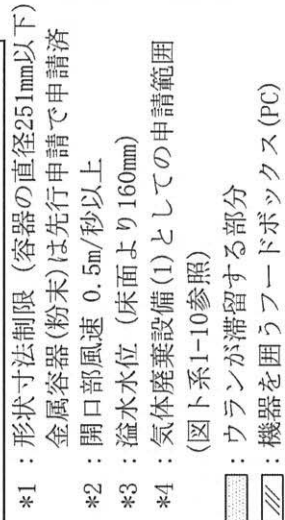 *1：形状寸法制限（容器の直径251mm以下）
金属容器(粉末)は先行申請で申請済
*2：開口部風速 0.5m/秒以上
*3：溢水水位（床面より160mm）
*4：気体廃棄設備(1)としての申請範囲
(図ト系1-10参照)
：ウランが滞留する部分
：機器を囲うフードボックス(PC)